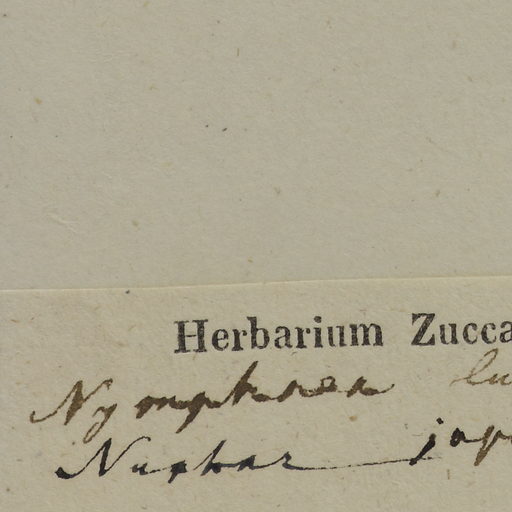 Herbarium Zucca
Nymphaea lu
Nuphar jap